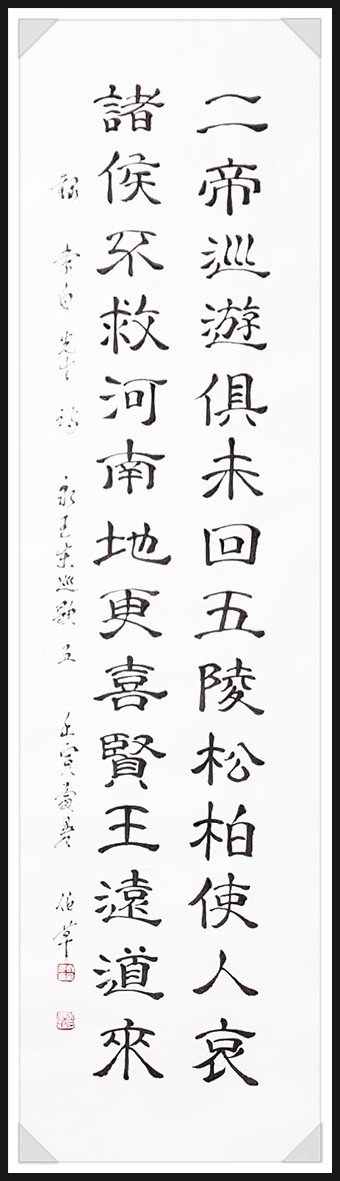 二帝巡遊俱未回五陵松柏使人哀
諸侯不救河南地更喜賢王遠道來
錄 李白先生詩 永王東巡歌五 壬寅 伯華